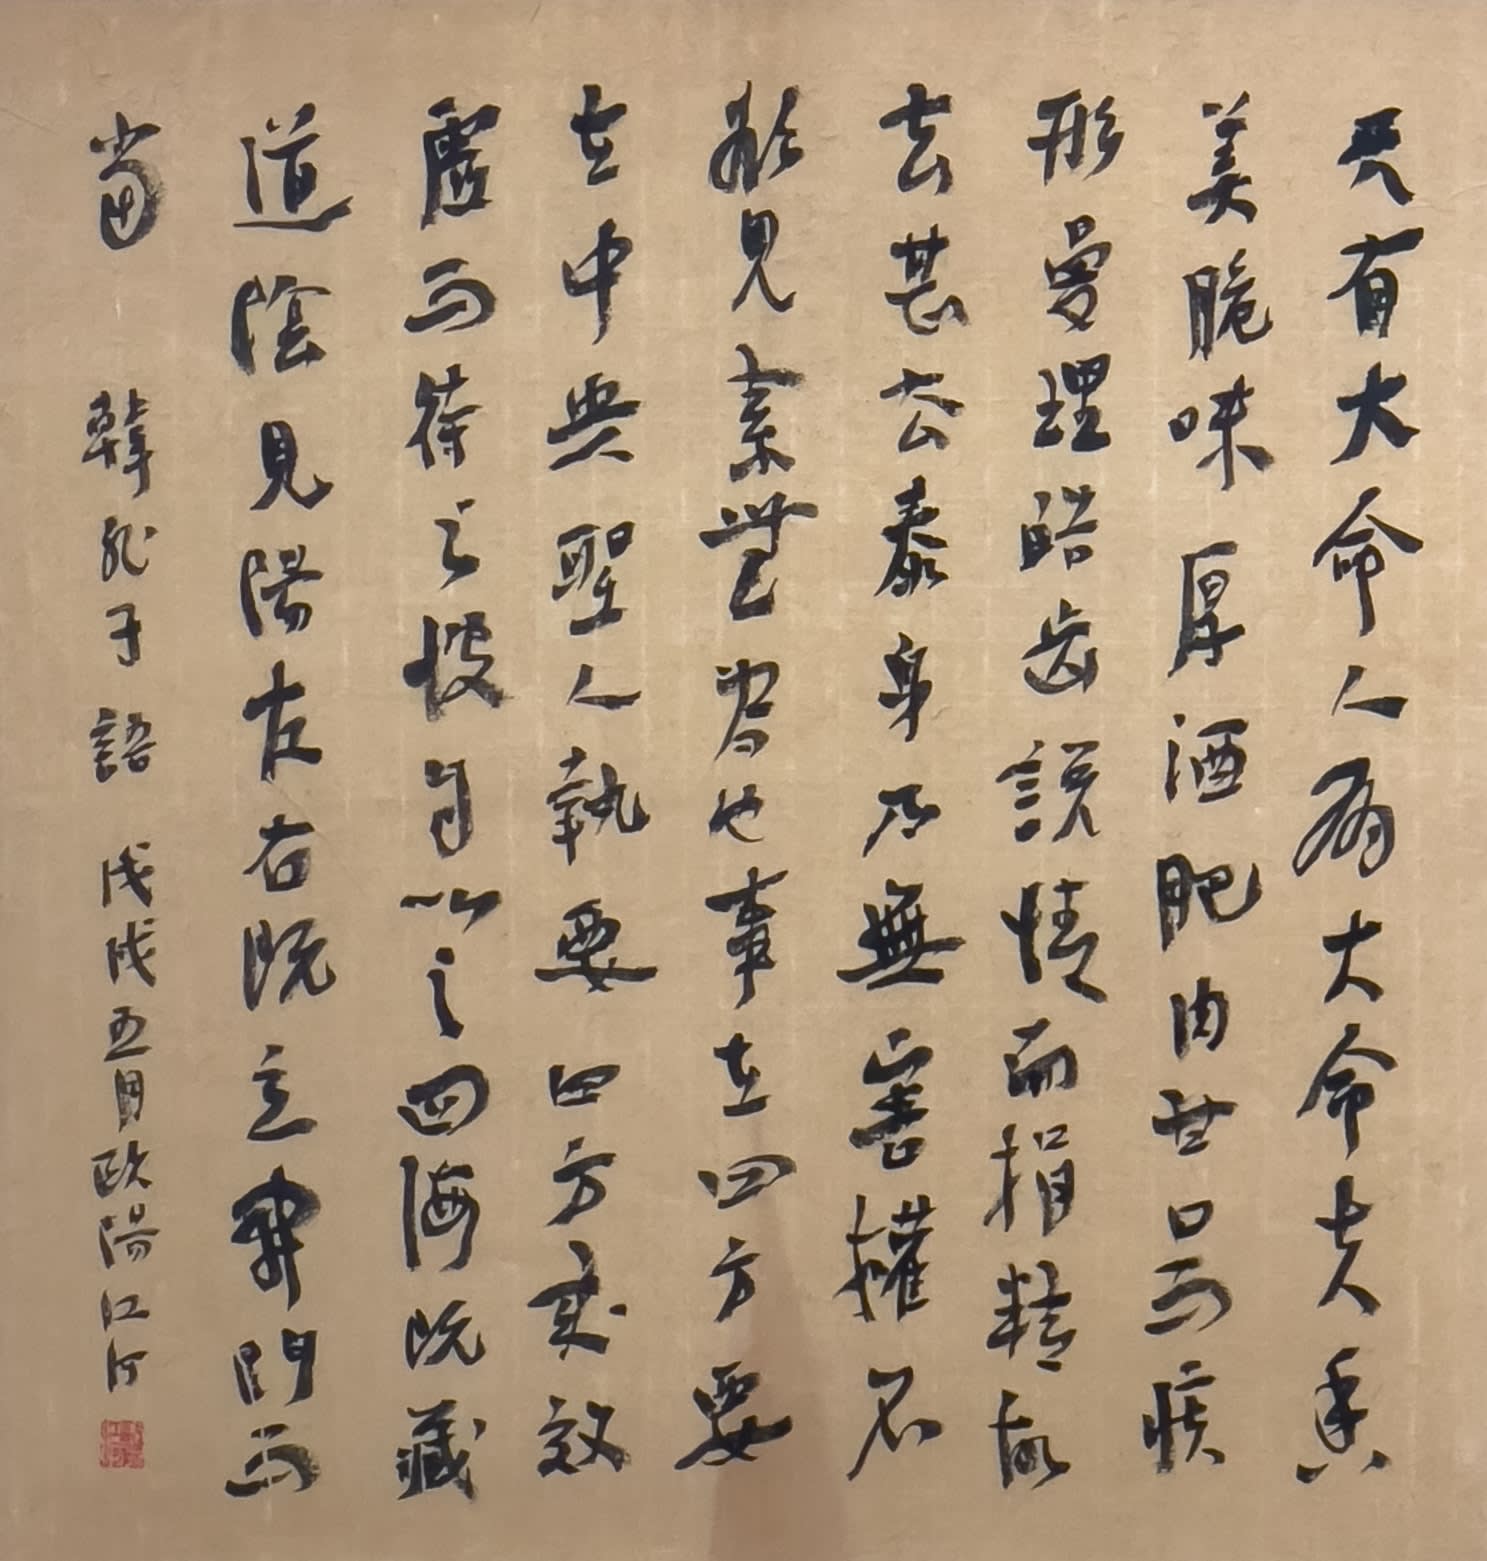 天有大命人有大命夫香
美脆味厚酒肥肉甘口而疾
形曼理皓齿說情而捐精故
去甚去泰身乃無害權不
欲見素無為也事在四方要
在中央聖人執要四方來效
虛而待之彼自以之四海既藏
道陰見陽左右既立開門而
當 韓非子語 戊戌五月歐陽江河